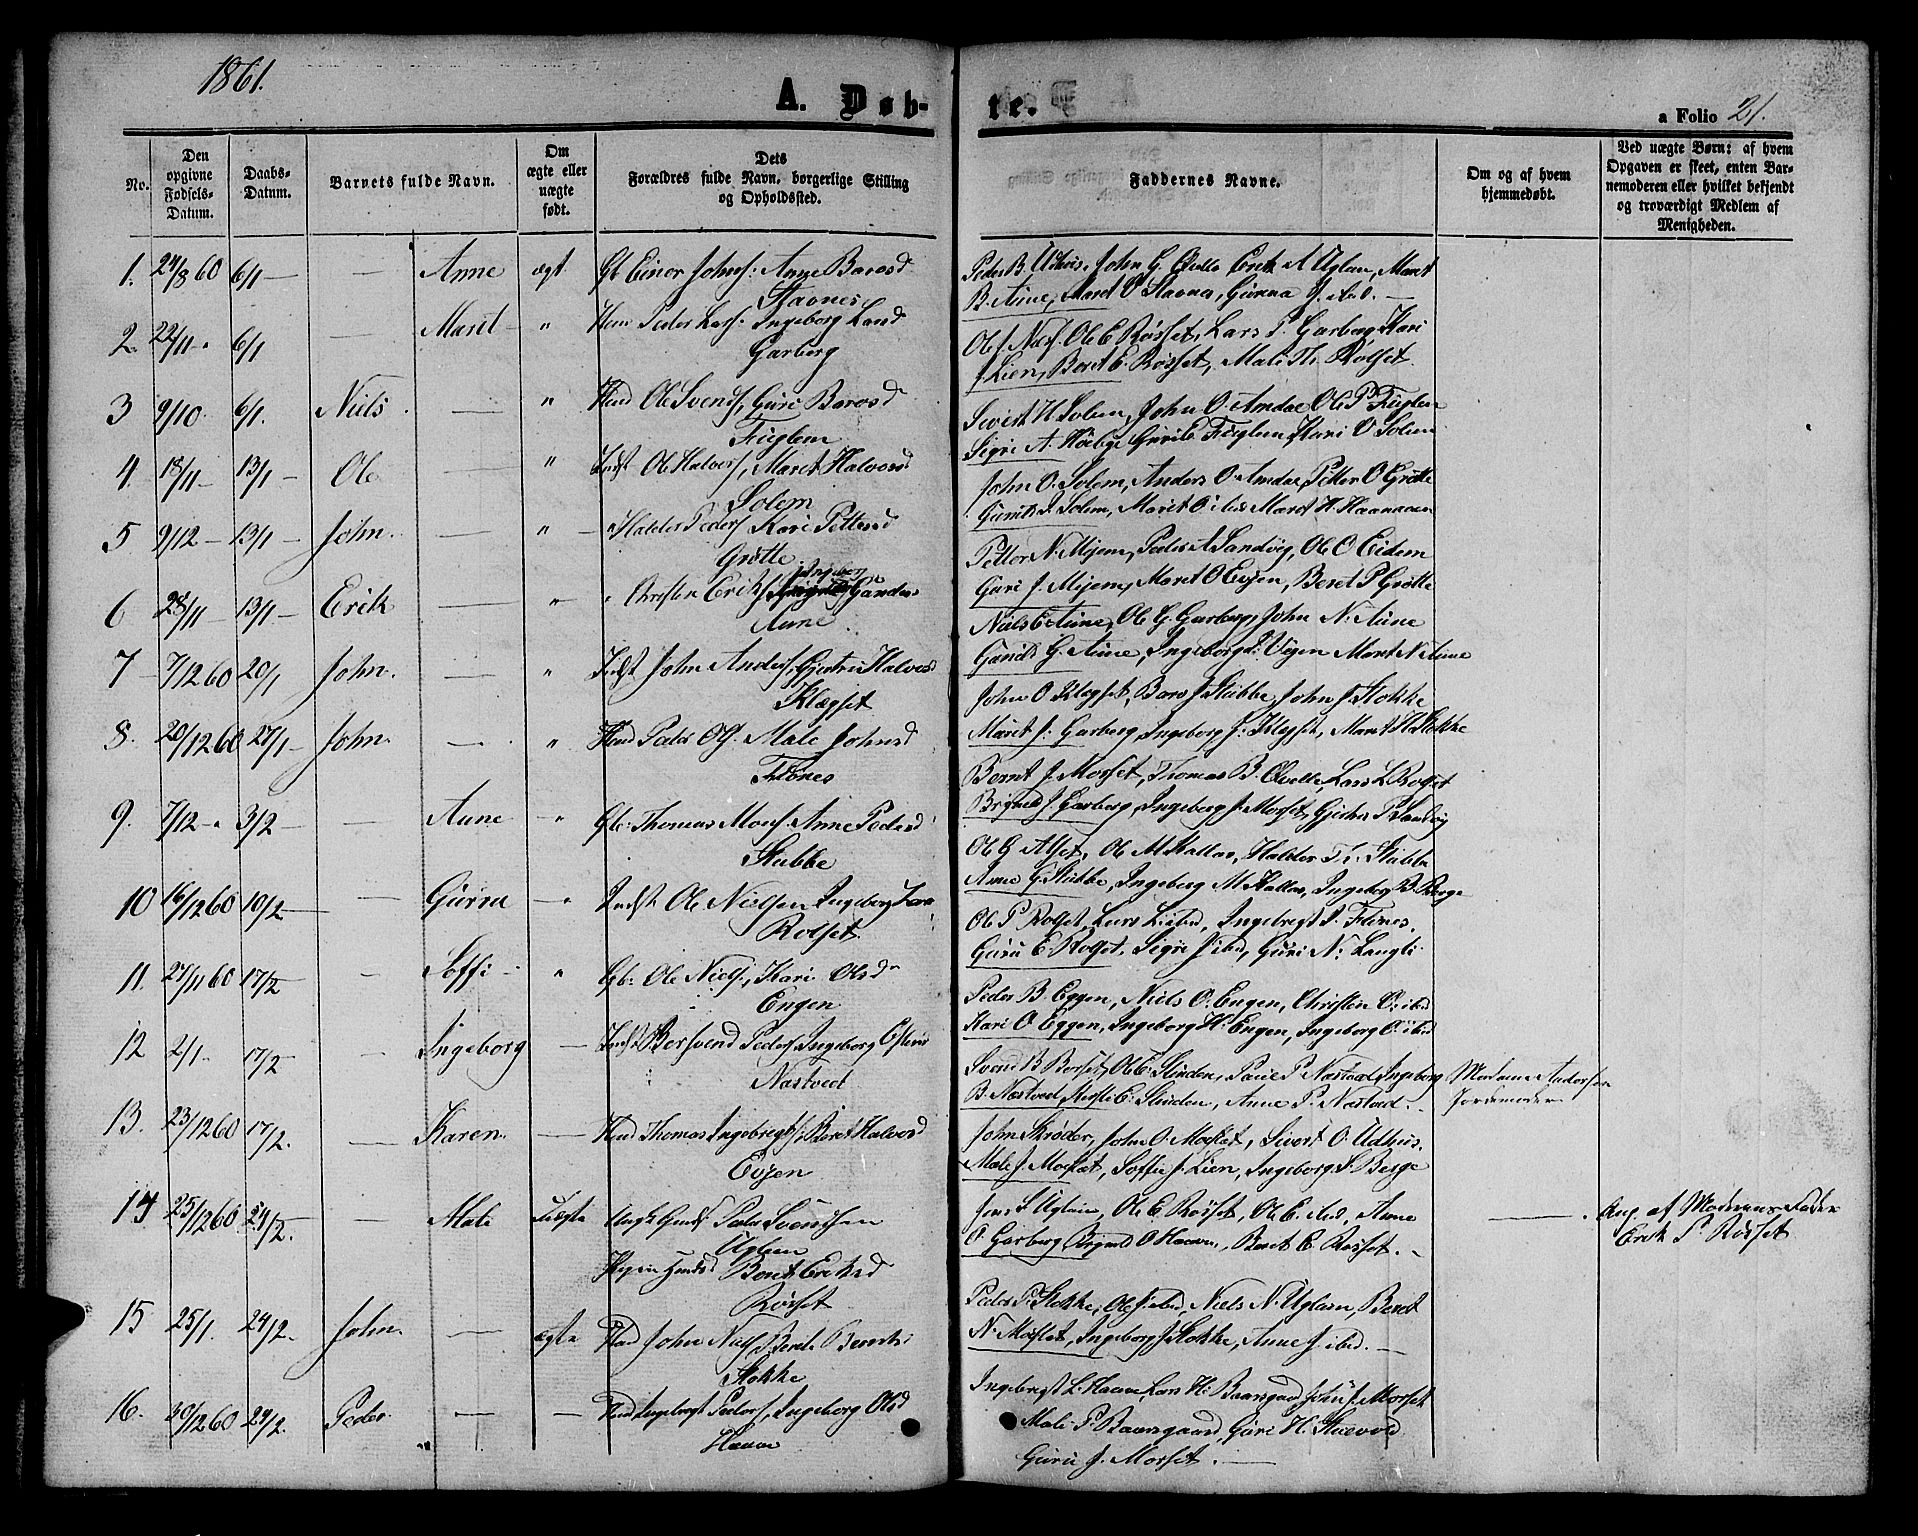 1861.
A. Døb-
te.
a Folio 21.
No.
Den opgivne Fødsels-Datum.
Daabs-Datum.
Barnets fulde Navn.
Om ægte eller uægte født.
Dets Forældres fulde Navn, borgerlige Stilling og Opholdssted.
Faddernes Navne.
Om og af hvem hjemmedøbt.
Ved uægte Børn: af hvem Opgaven er skeet, enten Barnemoderen eller hvilket bekjendt og troværdigt Medlem af Menigheden.
1. 24/8 60 6/1 — — Anne ægt Gb Einor Johns: Anne Barosd
Stavnes
Peder B. Udhus, John G. Qvello Erik A Uglan, Maret
B. Aune, Maret O Stavna, Gunna J. ibd. —
2. 22/11 - " 6/1 — Marit — " Huu Peder Lars. Ingeborg Land
Garberg
Ole J Næsf. Ole E. Røsset, Lars P. Garberg Kari
J. Lien, Beret E. Røsset, Male Th. Rolset.
3 9/10 6/1. Niels. — " Hmd Ole Svends, Guri Barosd
Fuglem
Sivert H. Solem, John O. Amdae Ole P. Fuglem
Sigri A. Høiby Guri E Fuglem, Kari O Solem
4. 18/11 — 13/1 — Ole — " Indst Ole Halvors, Maret Halvorsd
Solem
John O. Solem, Anders O. Amdae, Petter O Grøtte
Gurik J. Solem, Maret O ibd Maret H. Haanaaen
5 9/12 — 13/1 — John. — " — " Halder Peders. Kari Pettersd
Grøtte
Petter N. Mijem, Peder A Sandvig, Ole O Eidem
Guri J. Mijem, Maret O Evjen, Beret P Grøtte
6 28/11 — 13/1 — Erik — " — " Christen Eriks. Ingebor
Aune
Niels E Aune, Ole G. Garberg, John N. Aune
Gunild G. Aune, Ingeborg Vigen Maret N. Aune
7 — 7/12 60 20/1 John. " Indst John Anders. Gjertru Halvorsd
Klægset
John O Klegset, Baro J Stubbe, John J. Stokke
Maret J. Garberg, Ingeborg J. Klegset, Maret H. Stokke
8. 20/12 60 27/1 — John. — " Hmd Peder Ols. Male Johnsd
Flønes
Bernt J. Morset, Thomas B. Qvello, Lars L Rolset
Brynild J. Garberg, Ingeborg J. Morset, Gjertru P. Sandvig
9. 7/12 - " 3/2 — — Anne — " Gb: Thomas Mons. Anne Pedersd
Stubbe
Ole G. Alset, Ole M Kallar, Haldor Th. Stubbe
Anne G. Stubbe, Ingeborg M. Kallar, Ingeborg B. Berge
10 16/12 60 10/2 — — Guru — " Indst Ole Nielsen Ingeborg
Rolset.
Ole P Rolset, Lars L ibd, Ingebregt P. Flønes.
Guru E. Rolset, Sigri J ibd, Guri N. Langli
11. 27/11 60 17/2 — Soffi — " Gb: Ole Niels., Kari Olsd
Engen
Peder B. Eggen, Niels O. Engen, Christen O: ibd
Kari O Eggen, Ingeborg H: Engen, Ingeborg O: ibd
12 2/1. 17/2 — Ingeborg — Indst Borsvend Peders. Ingeborg Estens
Næstved
Svend B. Borset, Ole E. Slinden, Paul P Næstved Ingeborg
B. Næstved, Kirsti E. Slinden, Anne P. Næstved.
Madame Andersen
Jordemoder
13. 23/12 60 17/2. — Karen — Hmd Thomas Ingebregts: Beret Halvorsd
Evjen
John Skrøder, John O. Moslet, Sivert O. Udhus.
Male J. Moslet, Soffie J. Lien, Ingeborg S. Berge
14 23/12 60 24/2. — Male Uægte Ungk. Gmds Peder Svendsen
Uglem
Pigen Gmdsd Beret Eriksd
Røsset
Jens S Uglem, Ole E. Røsset, Ole E. ibd, Anne
O. Garberg Brynild O Haave, Beret E. Røsset. —
—
Ang. af Moderens Fader
Erik P. Røsset
15 25/1. 24/2. John. — ægte Hmd John Niels Beret Berents
Stokke
Peder P. Stokke, Ole J. ibd, Niels N. Uglem, Beret
N. Moslet, Ingeborg J. Stokke, Anne J. ibd. —
16. 30/12 60 24/2. Peder — — Hmd Ingebregt Peders, Ingeborg Olsd
Haave
Ingebregt L. Haave, Lars H. Baarsgaard John J. Morset
Male P. Baarsgaard, Guri H. Stuevold
Guru J. Morset. —